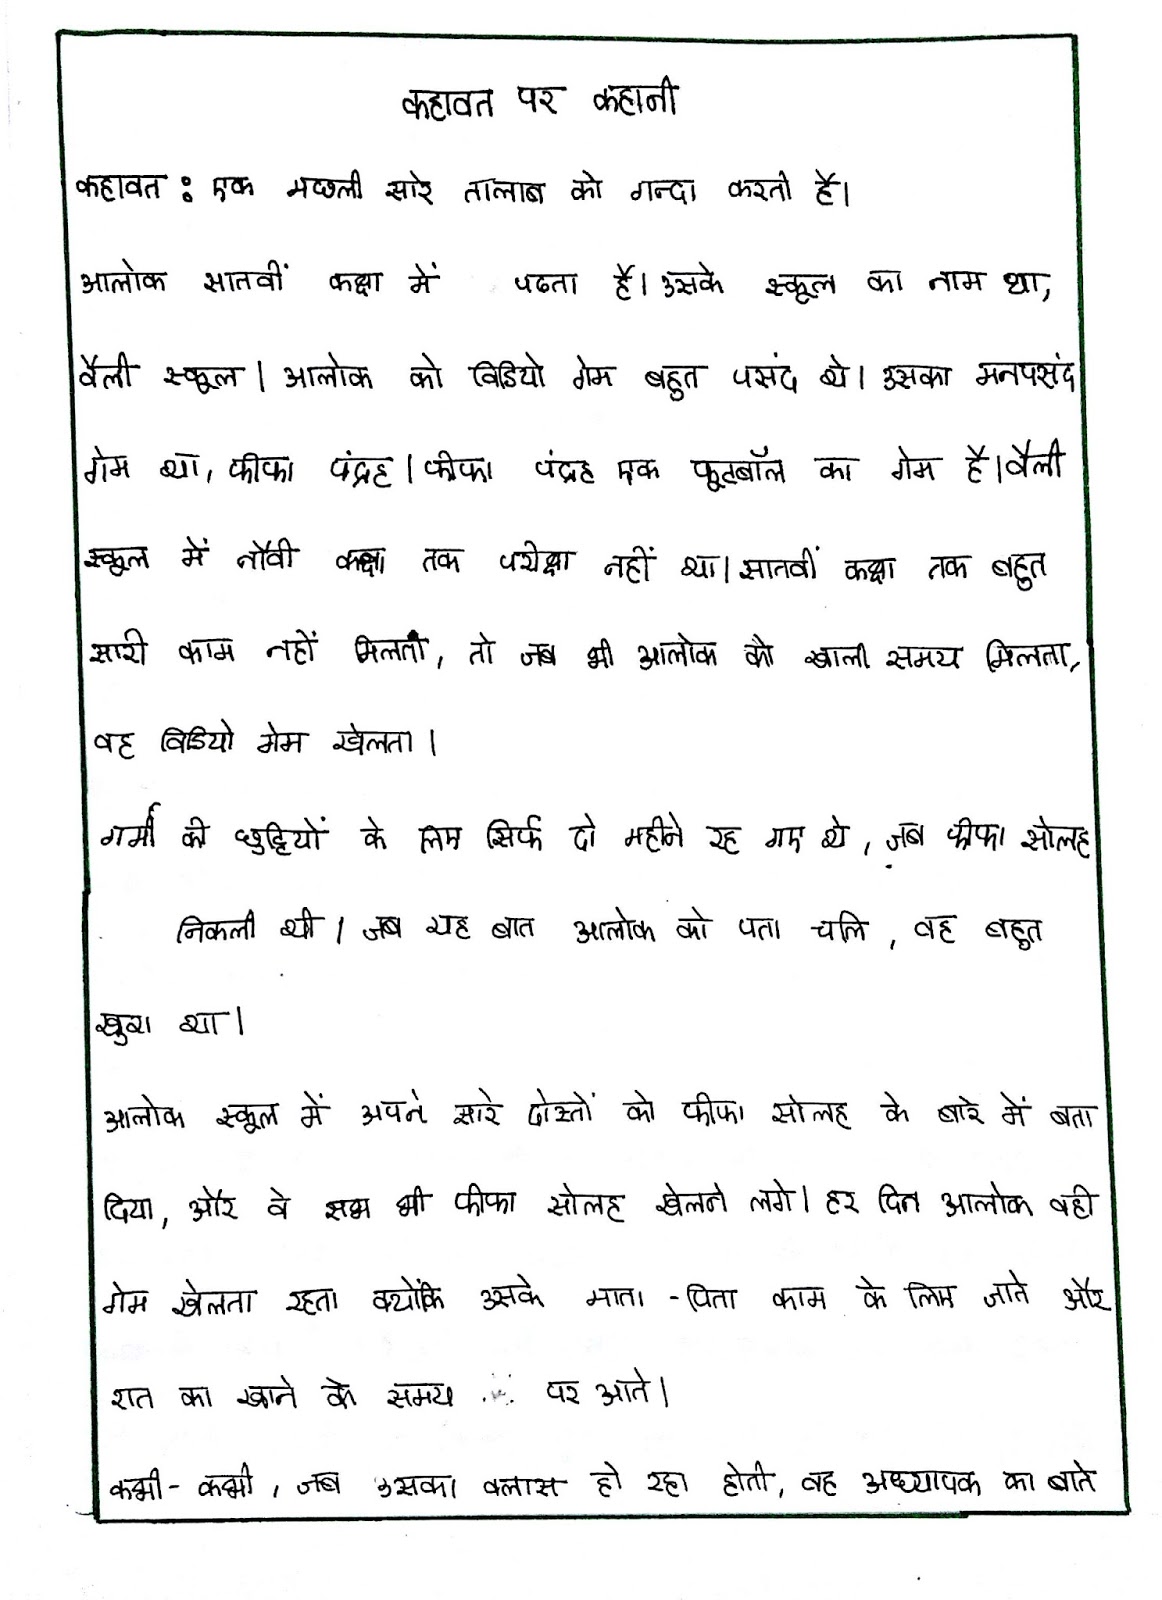 कहावत पर कहानी
कहावत : एक मछली सारे तालाब को गन्दा करती है।
आलोक सातवीं कक्षा में पढता है। उसके स्कूल का नाम था,
वैली स्कूल। आलोक को विडियो गेम बहुत पसंद थे। उसका मनपसंद
गेम था, फीफा पंद्रह। फीफा पंद्रह एक फूटबॉल का गेम है। वैली
स्कूल में नौवी कक्षा तक परीक्षा नहीं था। सातवीं कक्षा तक बहुत
सारी काम नहीं मिलती, तो जब भी आलोक को खाली समय मिलता,
वह विडियो गेम खेलता।
गर्मी की छुट्टियों के लिए सिर्फ दो महीने रह गए थे, जब फीफा सोलह
निकली थी। जब यह बात आलोक को पता चलि, वह बहुत
खुश था।
आलोक स्कूल में अपने सारे दोस्तों को फीफा सोलह के बारे में बता
दिया, और वे सभ भी फीफा सोलह खेलने लगे। हर दिन आलोक वही
गेम खेलता रहता क्योंकि उसके माता-पिता काम के लिए जाते और
रात का खाने के समय पर आते।
कभी-कभी, जब उसका क्लास हो रहा होती, वह अध्यापक का बाते